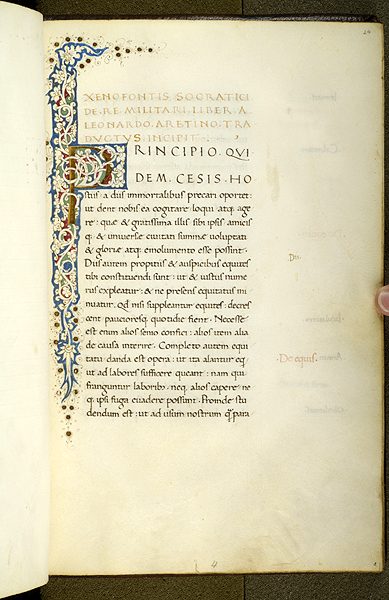 24
XENOFONTIS SOCRATICI
DE RE MILITARI LIBER A
LEONARDO ARETINO TRA
DVCTVS INCIPIT
PRINCIPIO QVI
DEM CESIS HO
stiis a diis immortalibus precari oportet:
ut dent nobis ea cogitare loqui atq; age
re: quæ & gratissima illis sibi ipsis amicis
q; & universæ civitati summæ voluptati
& gloriæ atq; emolumento esse possint.
Diis autem propitiis & auspicibus equites
tibi constituendi sunt: ut & iustus nume
rus expleatur: & ne presens equitatus mi
nuatur. Qd nisi suppleantur equites: decres
cent pauciores q; quotidie fient. Necesse
est enim alios senio confici: alios item alia
de causa interire. Completo autem equi
tatu danda est opera: ut ita alantur eq
ut ad labores sufficere queant: nam qui
franguntur laborib; neq; alios capere ne
q; ipsi fuga evadere possunt. Proinde stu
dendum est: ut ad usum nostrum para
Dii.
De equis.
4